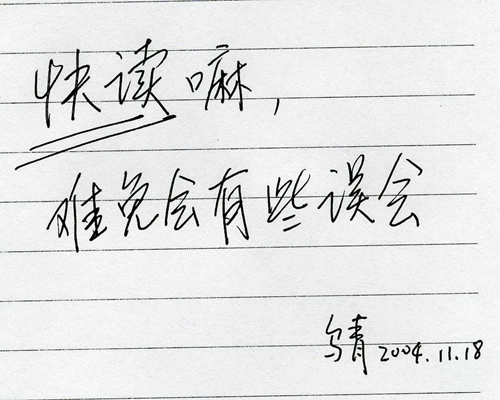 快读嘛,
难免会有些误会
乌青 2004.11.18